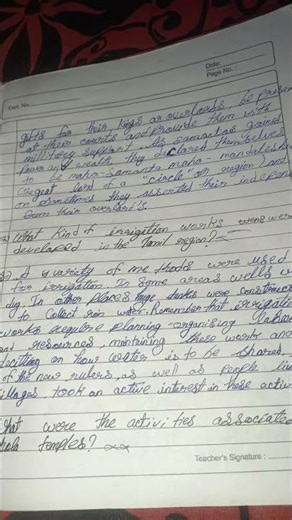 Date:
Page No.
Expt. No.
gifts for their kings or overlords, be present
at their courts and provide them with
military support. As samantas gained
power and wealth, they declared themselves
to be maha-samanta maha-mandaleshva
(Great lord of a "circle" or region) and
on sometimes they asserted their independ
from their overlords.
What Kind of irrigation works were
developed in the Tamil region?
A variety of methods were used
for irrigation. In some areas wells w
dug. In other places huge tanks were constructed
to collect rain water. Remember that irrigation
works require planning - organising labour
and resources, mintaining these works and
deciding on how water is to be shared.
of the new rulers, as well as people liv
villages took an active interest in these activ
What were the activities associated
hola temples?
Teacher's Signature :